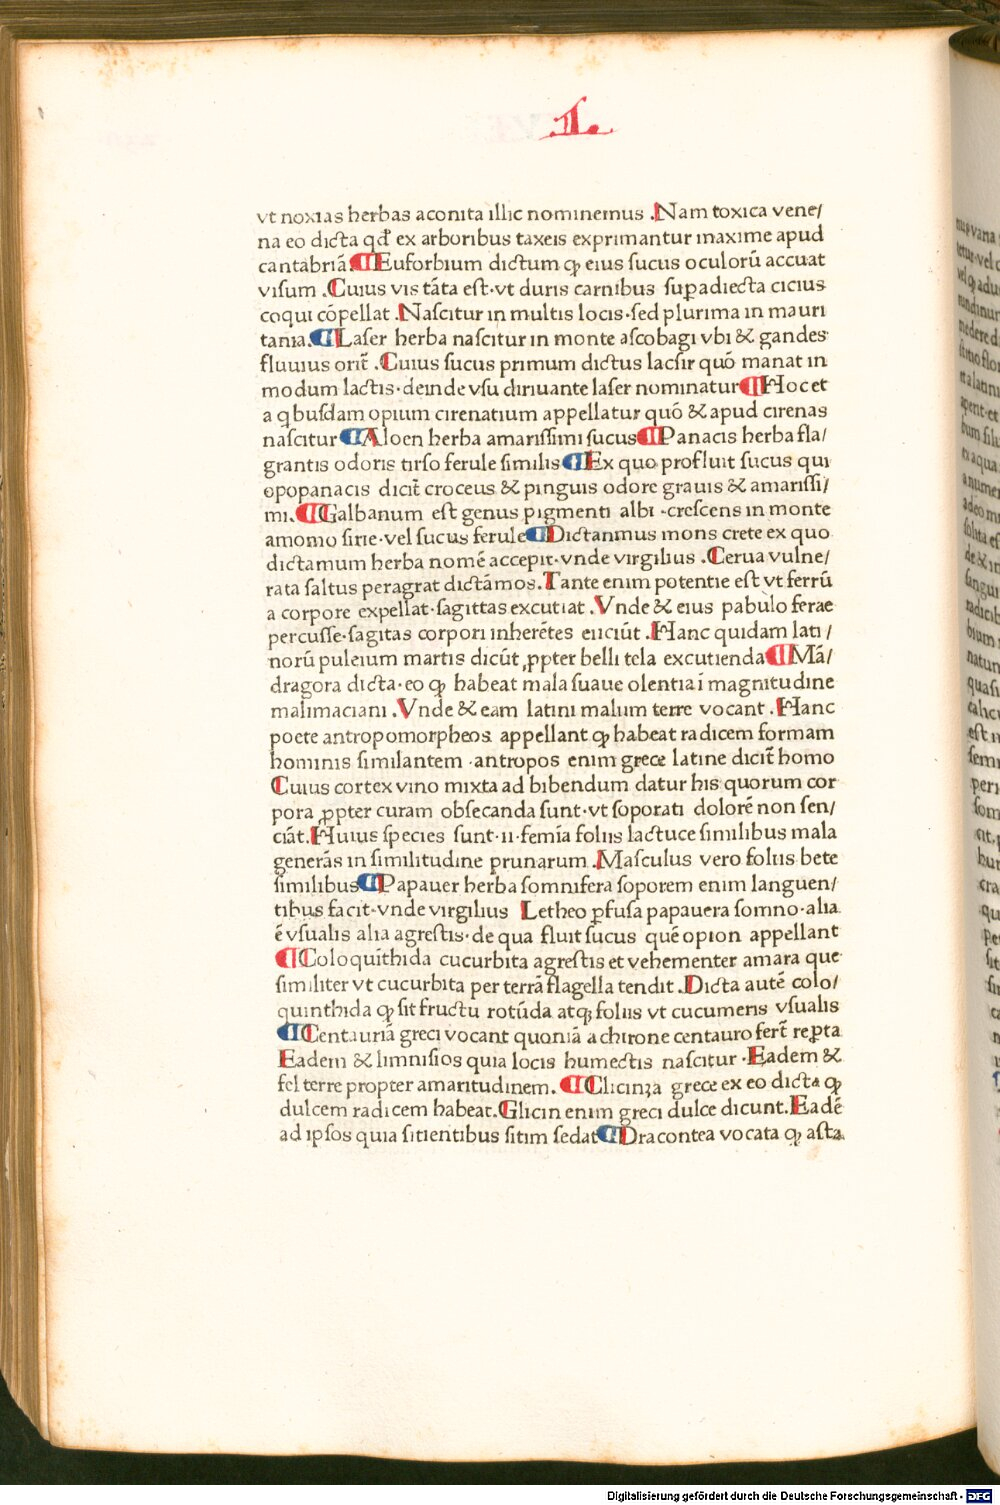 L.
vt noxias herbas aconita illic nominemus .Nam toxica vene/
na eo dicta qď ex arboribus taxeis exprimantur maxime apud
cantabriā ¶ Euforbium dictum ꝙ eius ſucus oculorū accuat
viſum .Cuius vis tāta eſt·vt duris carnibus ſupadiecta cicius
coqui cōpellat .Naſcitur in multis locis·ſed plurima in mauri
tania. ¶ Laſer herba naſcitur in monte aſcobagi vbi & gandes
fluuius orit̄ .Cuius ſucus primum dictus lacſir quō manat in
modum lactis·deinde vſu diriuante laſer nominatur ¶ Hoc et
a qbuſdam opium cirenatium appellatur quō & apud cirenas
naſcitur ¶ Aloen herba amariſſimi ſucus ¶ Panacis herba fla/
grantis odoris tirſo ferule ſimilis ¶ Ex quo profluit ſucus qui
opopanacis dicit̄ croceus & pinguis odore grauis & amariſſi/
mi. ¶ Galbanum eſt genus pigmenti albi ·creſcens in monte
amomo ſirie·vel ſucus ferule ¶ Dictanmus mons crete ex quo
dictamum herba nomē accepit·vnde virgilius .Cerua vulne/
rata ſaltus peragrat dictāmos.Tante enim potentie eſt vt ferrū
a corpore expellat·ſagittas excutiat .Vnde & eius pabulo ferae
percuſſe·ſagitas corpori inherētes eiiciūt .Hanc quidam lati /
norū puleium martis dicūt ꝓpter belli tela excutienda ¶ Mā/
dragora dicta·eo ꝙ habeat mala ſuaue olentia ī magnitudine
malimaciani .Vnde & eam latini malum terre vocant .Hanc
poete antropomorpheos appellant ꝙ habeat radicem formam
hominis ſimilantem ·antropos enim grece latine dicit̄ homo
Cuius cortex vino mixta ad bibendum datur his quorum cor
pora ꝓpter curam obſecanda ſunt·vt ſoporati dolorē non ſen/
ciāt.Huius ſpecies ſunt·ii·femīa foliis lactuce ſimilibus mala
generās in ſimilitudine prunarum .Maſculus vero foliis bete
ſimilibus ¶ Papauer herba ſomnifera ſoporem enim languen/
tibus facit·vnde virgilius Letheo ꝑfuſa papauera ſomno·alia
ē vſualis alia agreſtis·de qua fluit ſucus quē opion appellant
¶ Coloquīthida cucurbita agreſtis et vehementer amara que
ſimiliter vt cucurbita per terrā flagella tendit .Dicta autē colo/
quinthida ꝙ ſit fructu rotūda atqꝫ foliis vt cucumeris vſualis
¶ Centauriā greci vocant quoniā a chirone centauro fert̄ reꝑta
Eadem & limniſios quia locis humectis naſcitur ·Eadem &
fel terre propter amaritudinem. ¶ Glicinza grece ex eo dicta ꝙ
dulcem radicem habeat.Glicin enim greci dulce dicunt.Eadē
ad ipſos quia ſitientibus ſitim ſedat ¶ Dracontea vocata ꝙ aſta
Digitalisierung gefördert durch die Deutsche Forschungsgemeinschaft - DFG